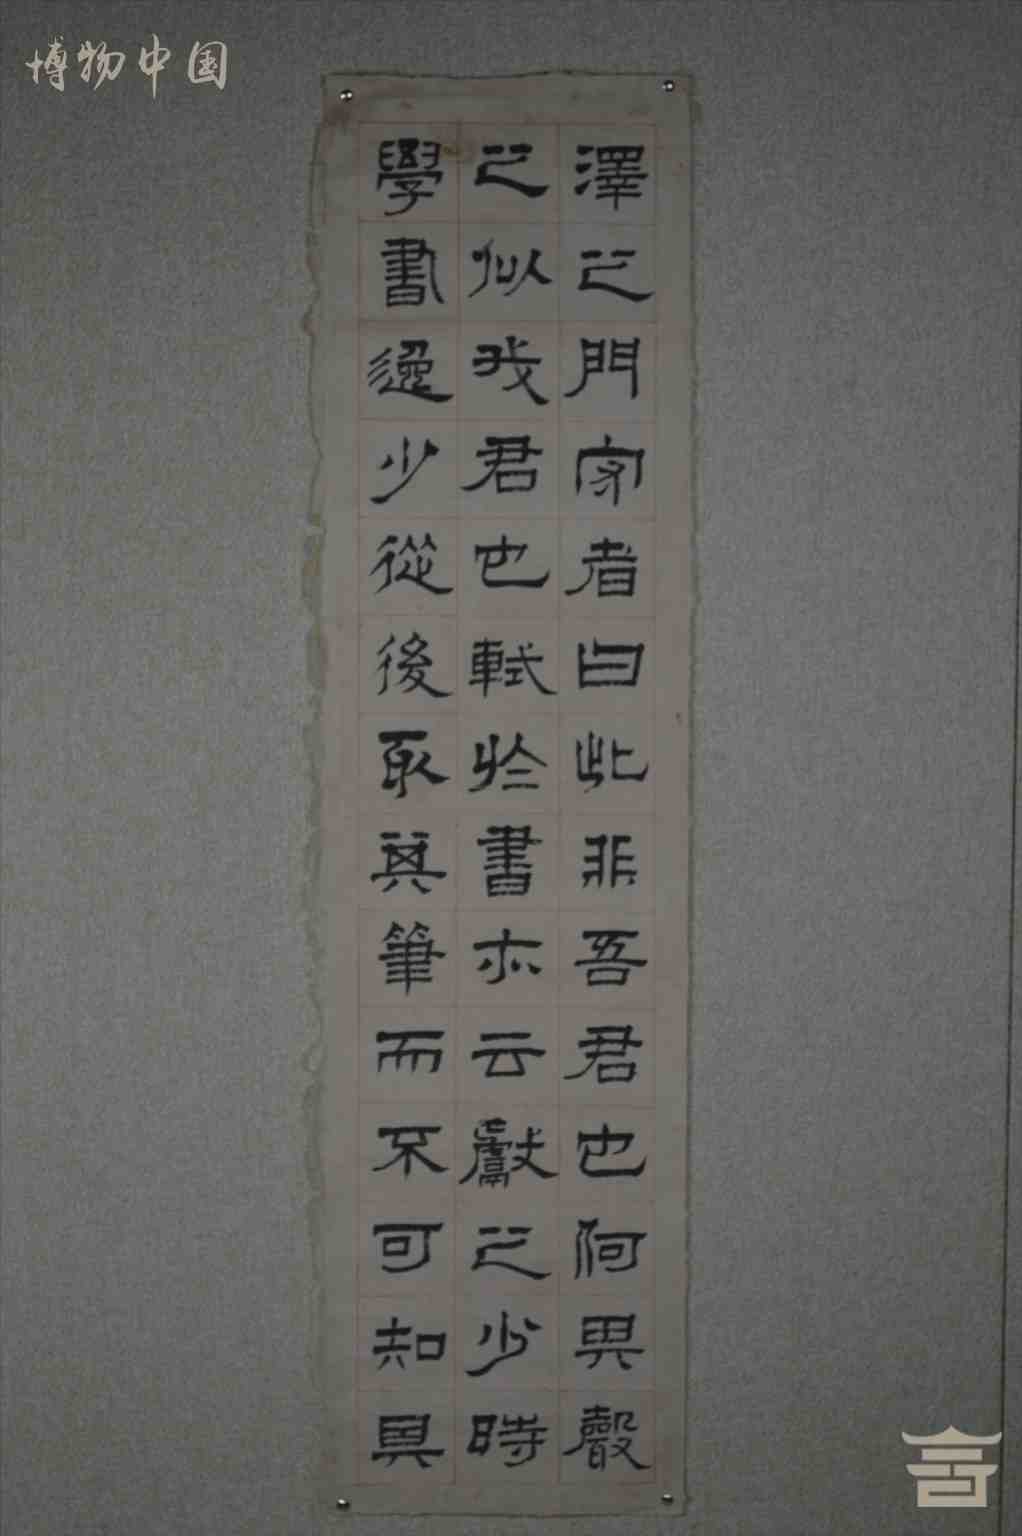 博物中国
澤之門守者曰此非吾君也何其聲
之似我君也軾於書亦云獻之少時
學書逸少從後取其筆而不可知其